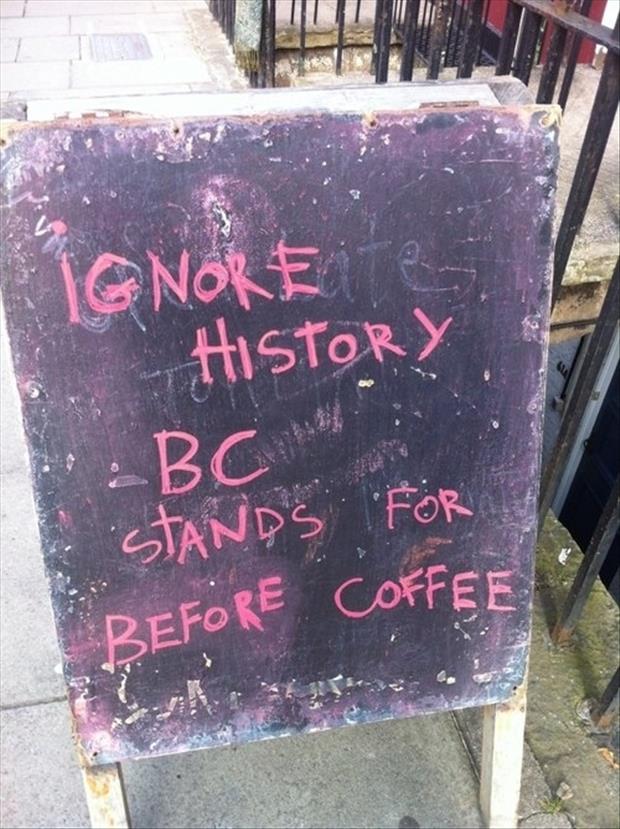 iGNORE
HISTORY
BC
STANDS FOR
BEFORE COFFEE